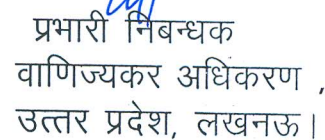 प्रभारी निबन्धक
वाणिज्यकर अधिकरण ,
उत्तर प्रदेश, लखनऊ।